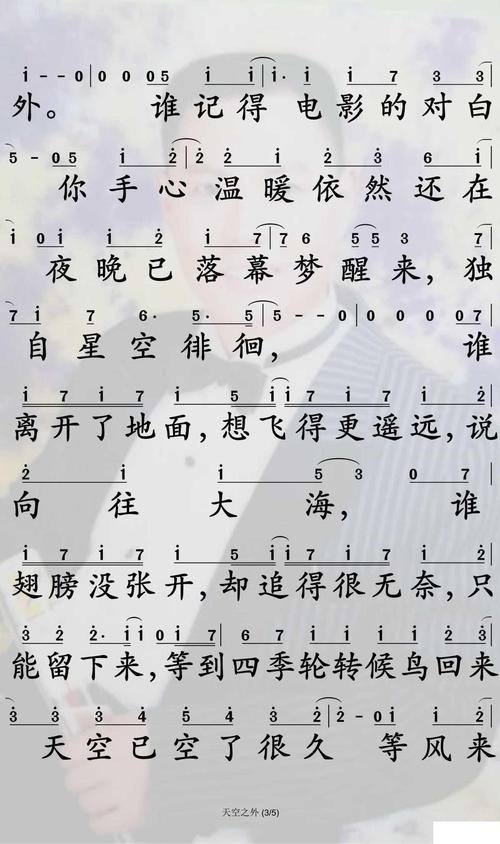 i - - 0 | 0 0 0 05 i i i | i· i i 7 3 3 |
外。 谁记得 电影的对白
5 - 05 i 2 | 2 2 i 2 3 6 i |
你手心温暖依然还在
i 0i i 2 i 7 | 7 6 5 5 3 7 |
夜晚已落幕梦醒来，独
7 i 7 6· 5· 5 | 5 - - 0 | 0 0 0 07 |
自星空徘徊， 谁
i 7 i 7 i 5 i | i 7 i 7 i 2 |
离开了地面，想飞得更遥远，说
2 i i 5 3 0 7 |
向往大海，谁
i 7 i 7 i 5 i | i 7 i 7 i 2 |
翅膀没张开，却追得很无奈，只
3 2 2· i i 0 i 7 | 6 7 i i i i 2 3 |
能留下来，等到四季轮转候鸟回来
3 3 3 4 5 4 3 2 | 2 - 0i i 2 |
天空已空了很久 等风来
天空之外 (3/5)